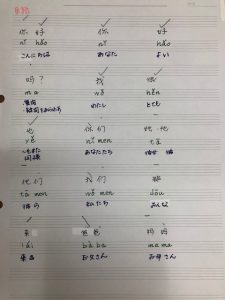 你好 你 好
nǐ hǎo nǐ hǎo
こんにちは あなた よい
吗? 我 很
ma wǒ hěn
わたし とても
也 你们 她・他
yě nǐ men tā
あなたたち 彼女 彼
他们 我们 都
tā men wǒ men dōu
彼ら 私たち みんな
来 爸爸 妈妈
lái bà ba mā ma
来る お父さん お母さん